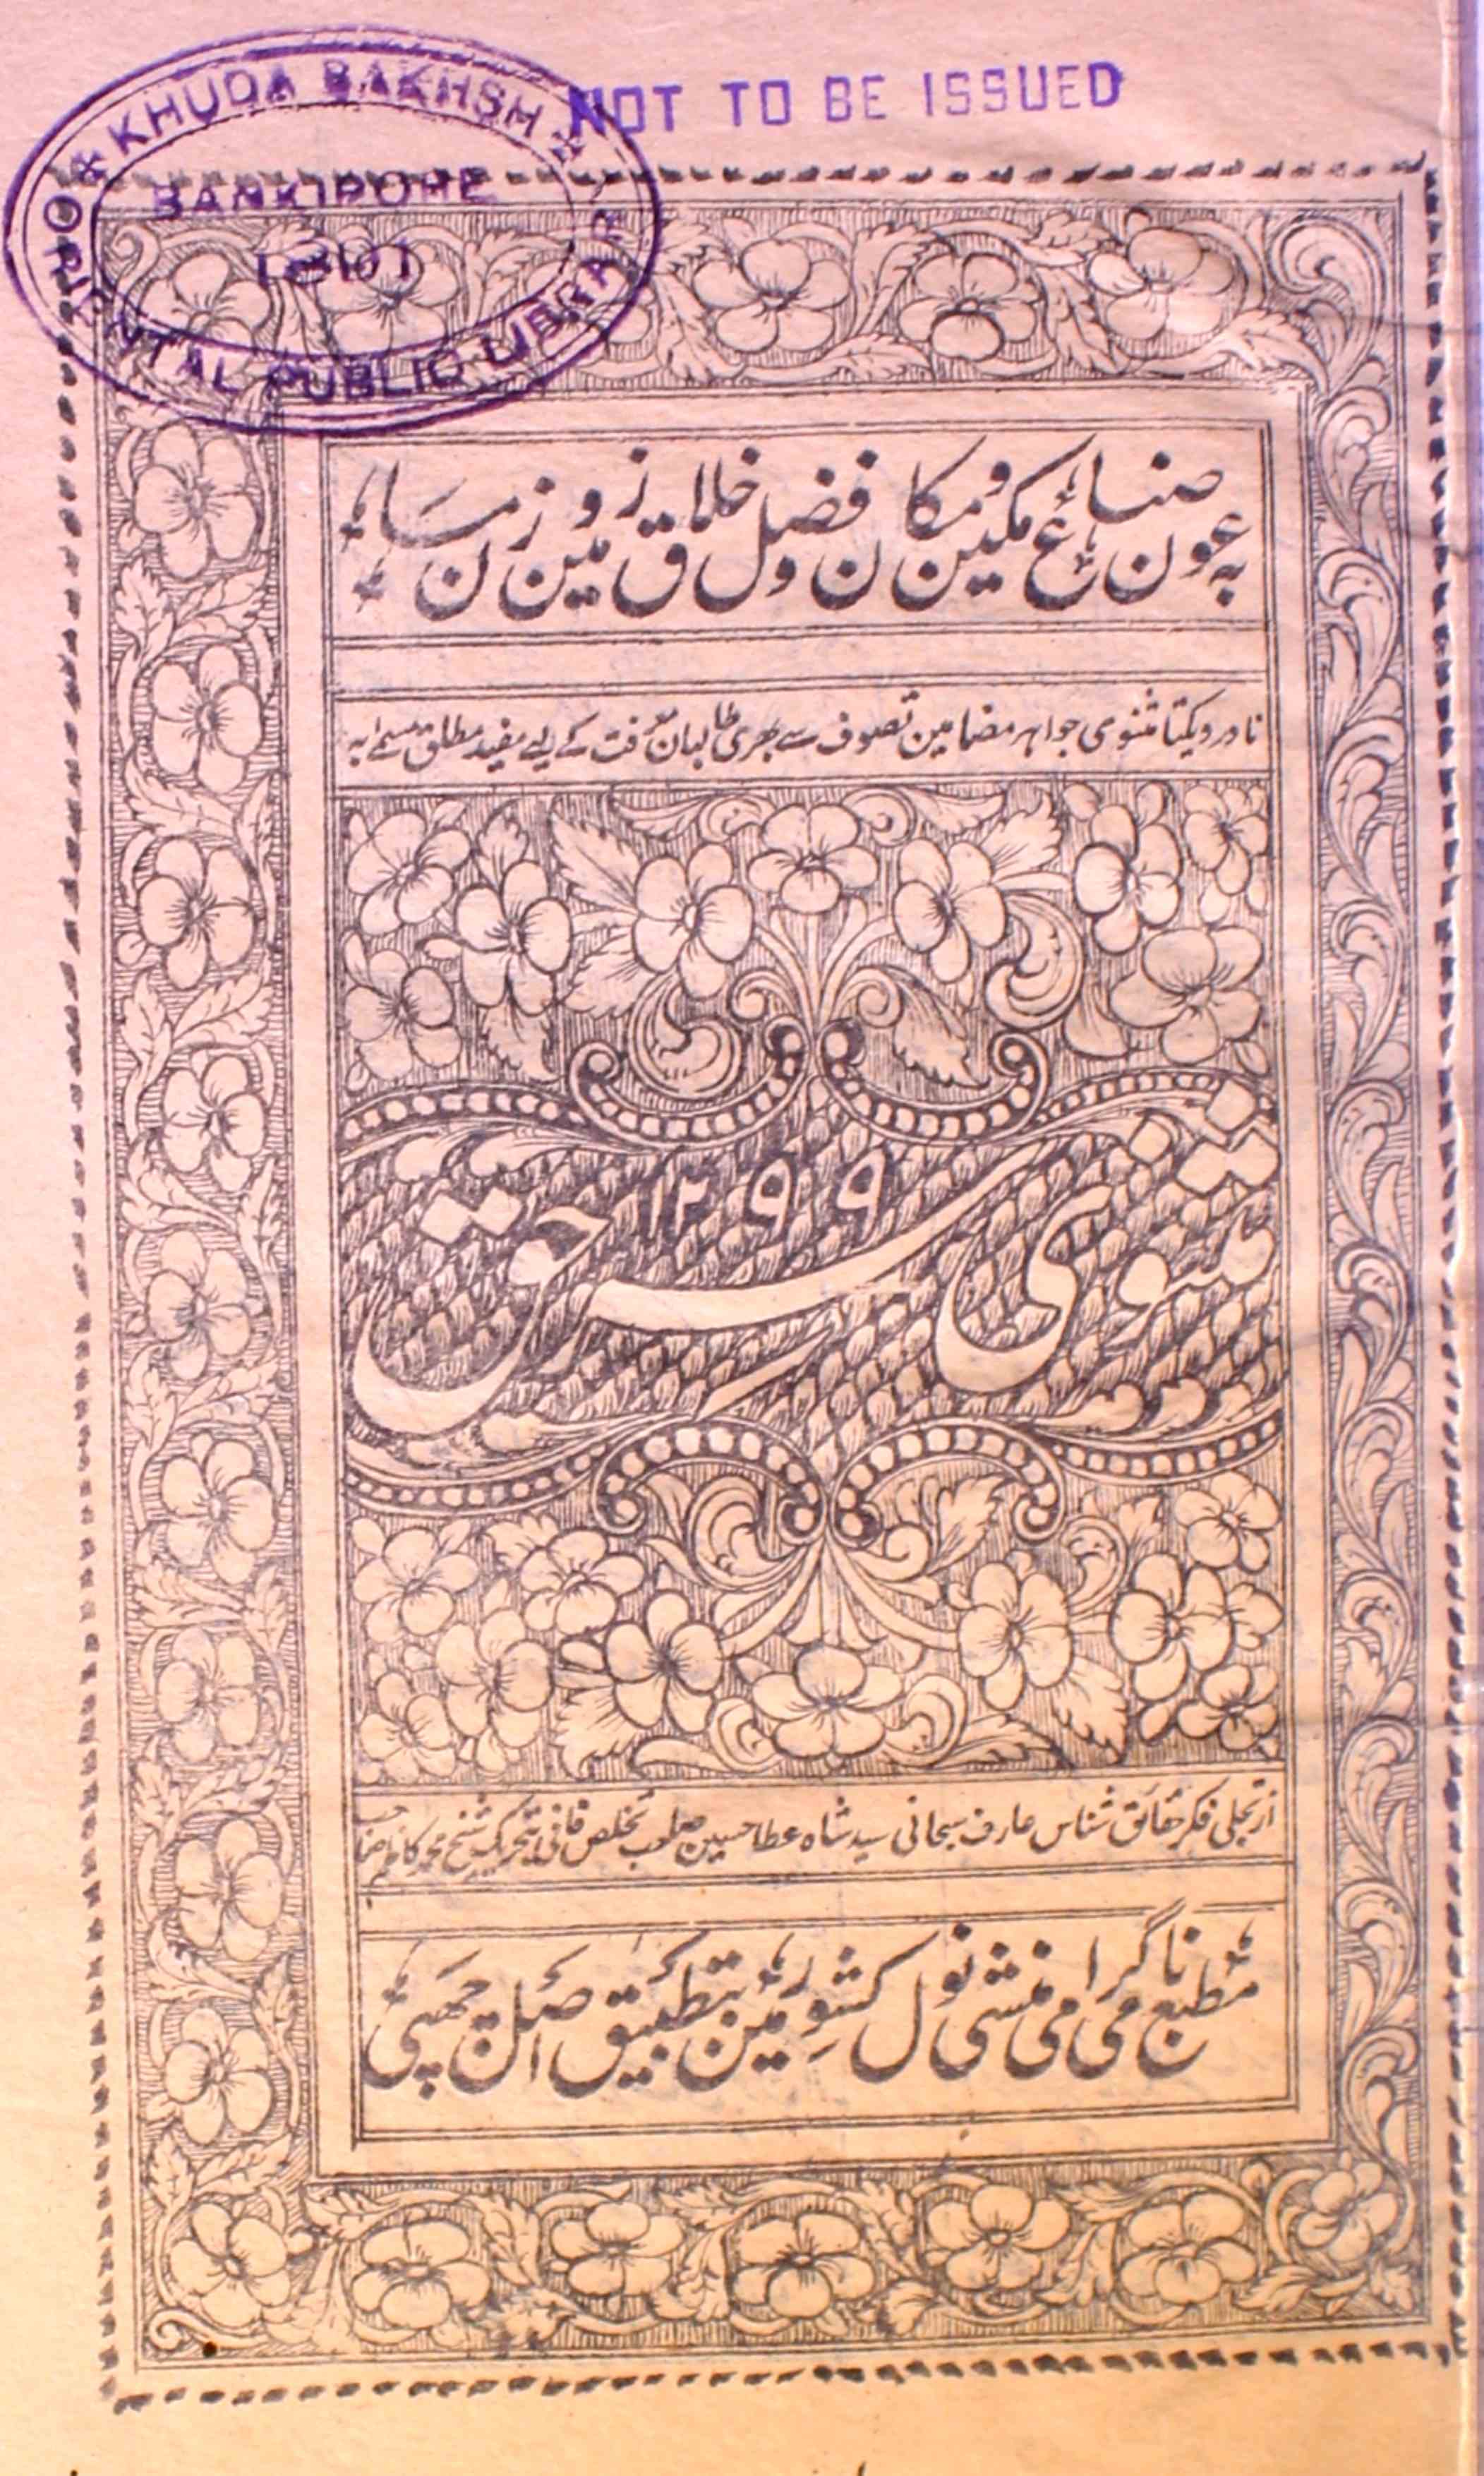 KHUDA BAKHSH
NOT TO BE ISSUED
BANKIPORE
ORIENTAL PUBLIC LIBRARY
بعون صناع مکین و مکان و فضل خلاق زمین و زمان
نادر و یکتا مثنوی جواہر مضامین تصوف سے بھری طالبان معرفت کے لیے مفید مطلق مسمے بہ
۱۲۹۹
مثنوی سر حق
از تجلی فکر حقائق شناس عارف سبحانی سید شاہ عطا حسین صاحب تخلص فانی بتحریک شیخ محمد کاظم صاحب
مطبع نامی گرامی منشی نول کشور مین بتطبیق اصل چھپی